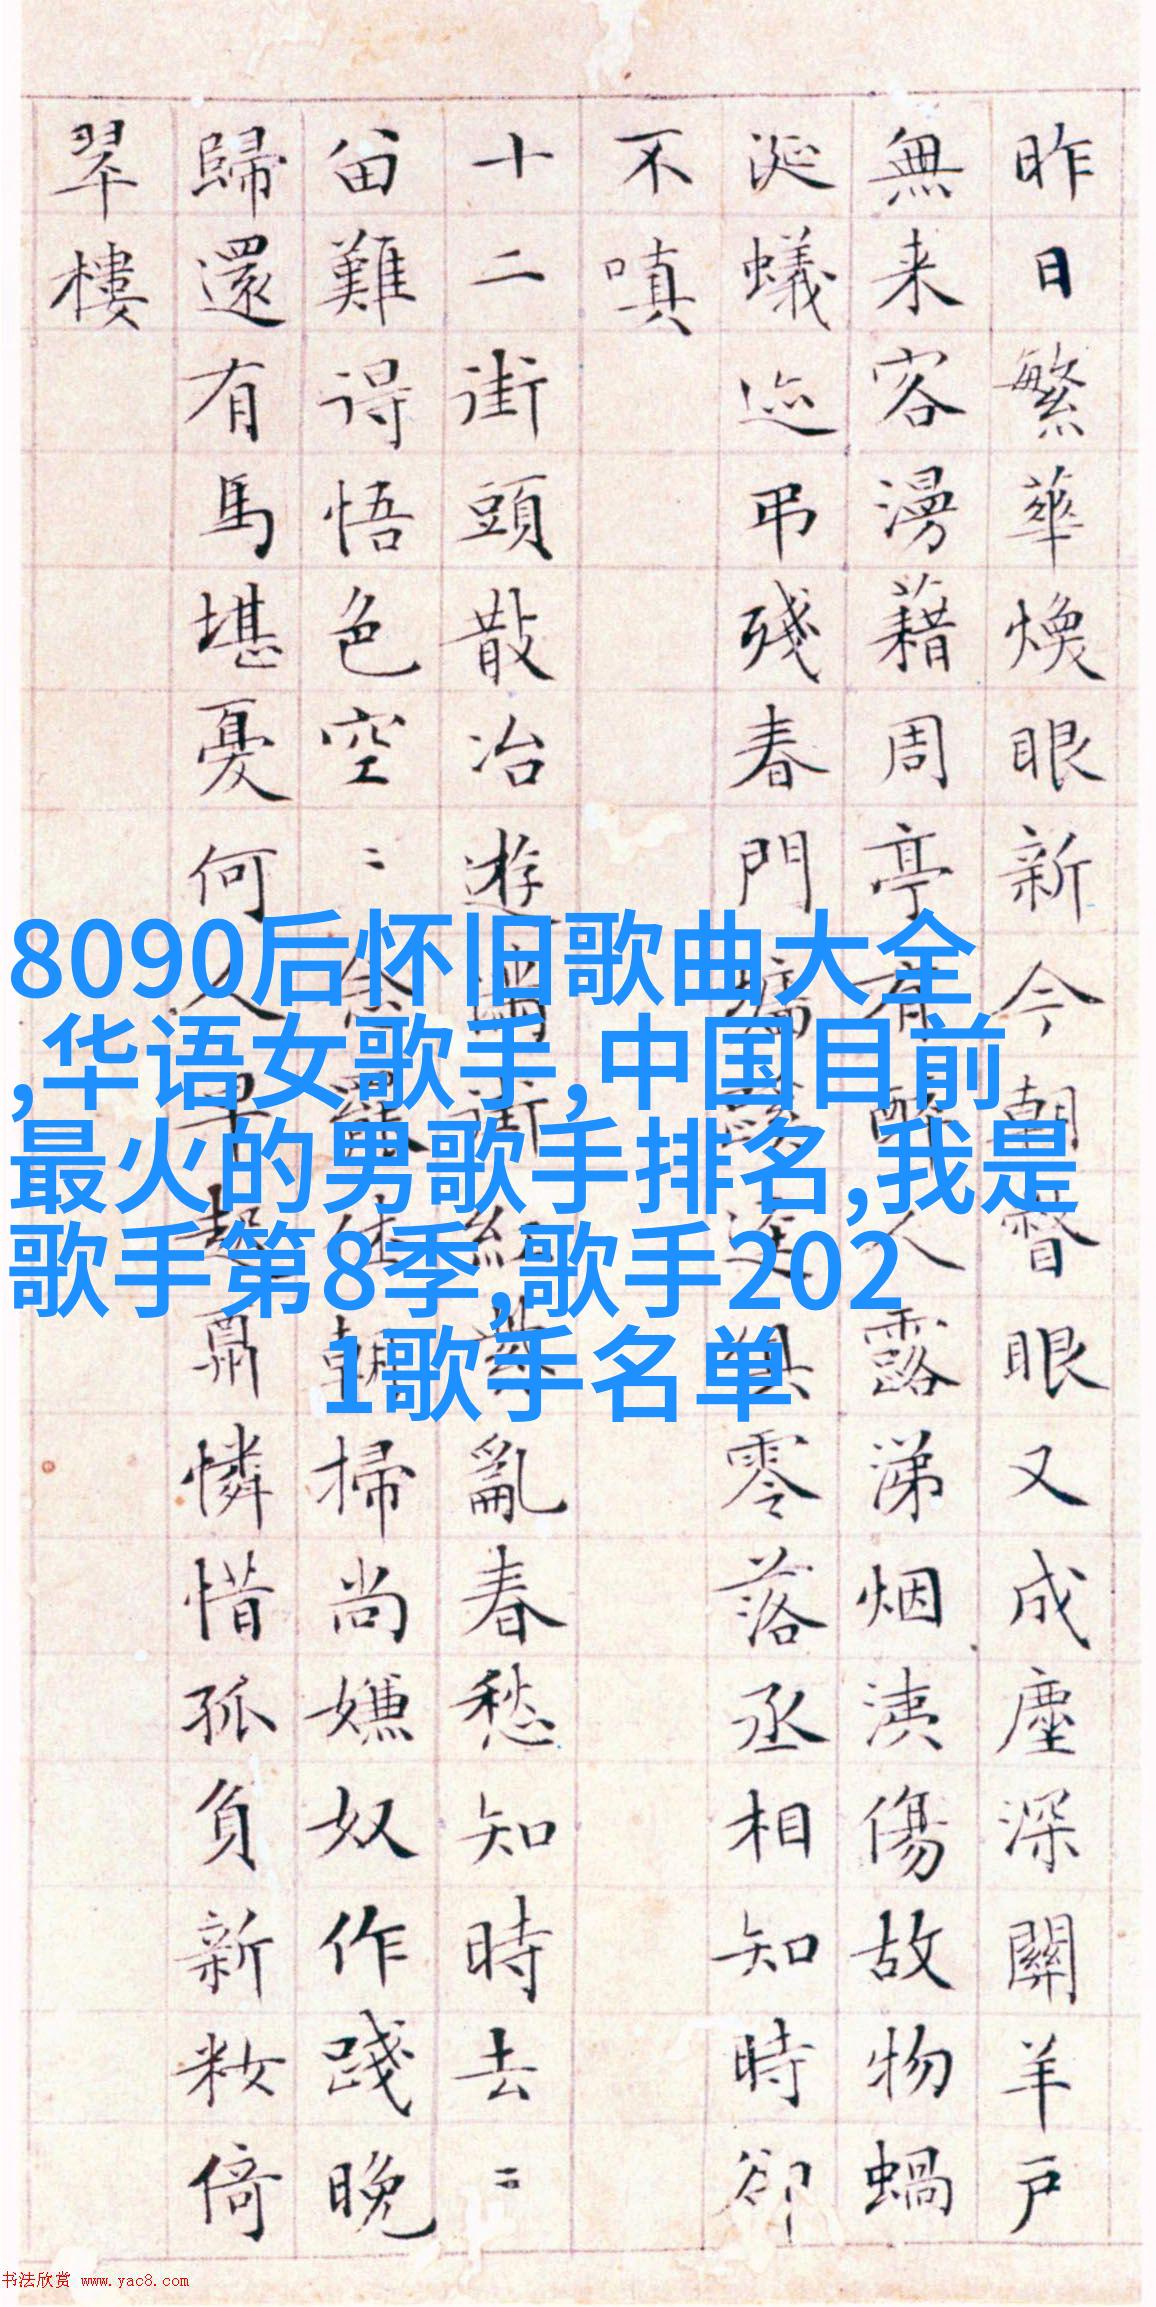 昨日繁華煥眼新今朝瞥眼又成塵深關羊户
無来客漫藉周亭有醉人露涕烟洟傷故物蝸
涎蟻迹弔殘春門迳俱零落丞相知時卻
不嗔
十二街頭散冶遊滿街紅紫亂春愁知時去〻
留難得悟色空〻念罷休朝掃尚嫌奴作踐晚
歸還有馬堪憂何人早起憐惜孤負新妝倚
翠樓
8090后怀旧歌曲大全
,华语女歌手,中国目前
最火的男歌手排名,我是
歌手第8季,歌手202
1歌手名单
书法欣赏 www.yac8.com